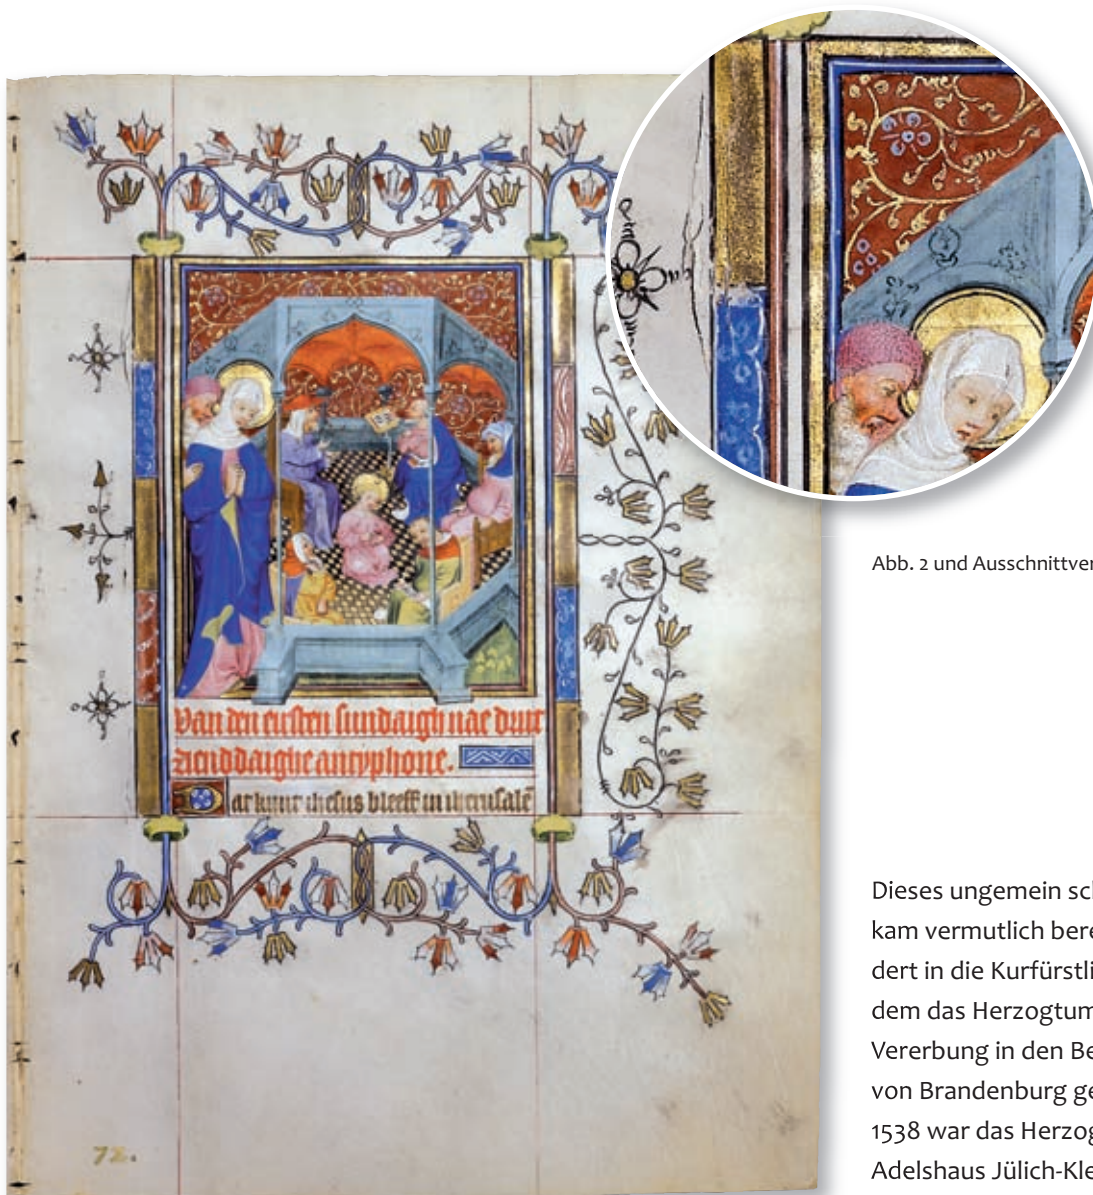 Van den eirsten sundaigh nae druit
zienddaighe antyphone.
Dat kynt ihesus bleeff in iherusalē
72.
Abb. 2 und Ausschnittver
Dieses ungemein sc
kam vermutlich bere
dert in die Kurfürstli
dem das Herzogtum
Vererbung in den Be
von Brandenburg ge
1538 war das Herzog
Adelshaus Jülich-Kle